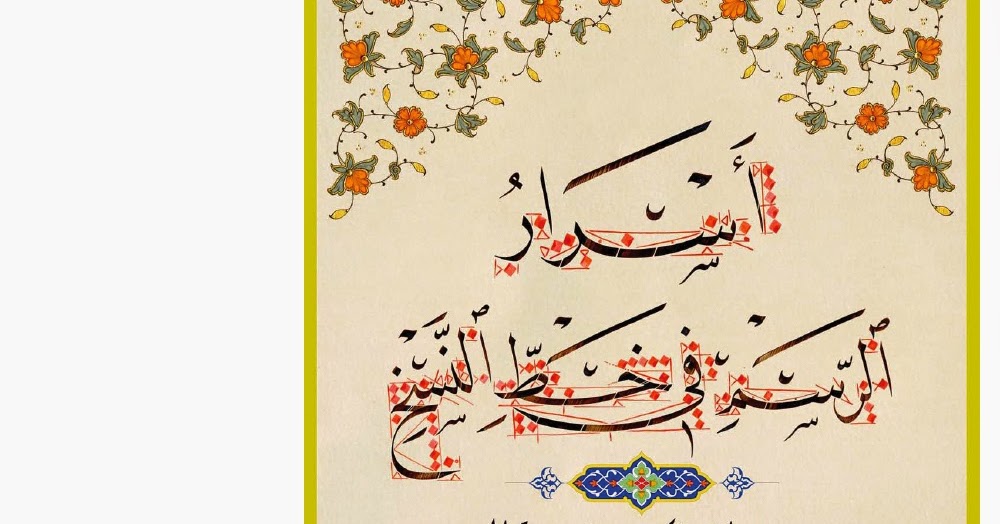 أَسْرَارُ
ٱلرَّسْمِ فِي خَطِّ ٱلنَّسْخِ